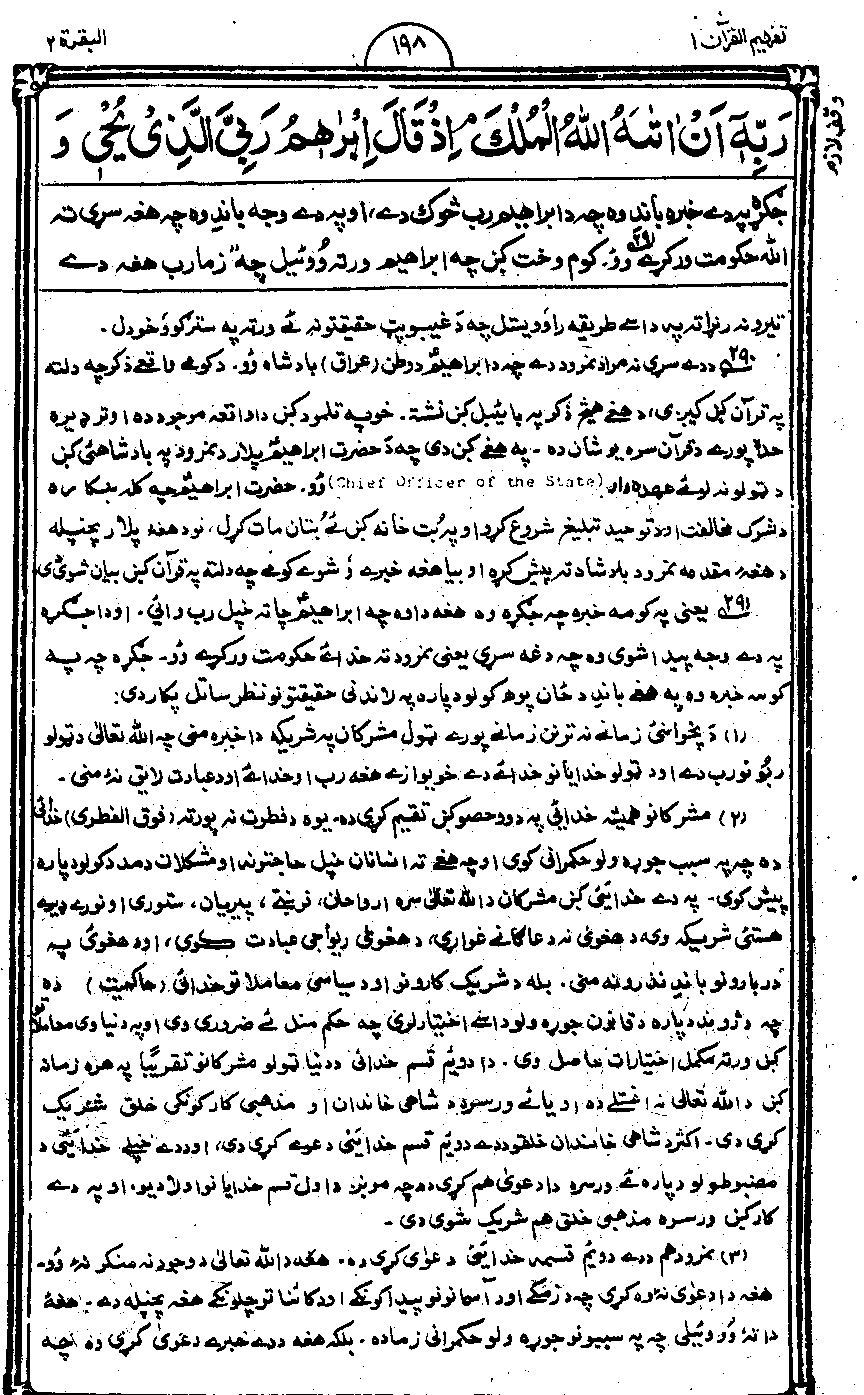 تفهیم القرآن ۱
۱۹۸
البقرة ۲
وقف لازم
رَبِّهٖٓ اَنْ اٰتٰىهُ اللّٰهُ الْمُلْكَ ۘ اِذْ قَالَ اِبْرٰهٖمُ رَبِّیَ الَّذِیْ یُحْیٖ وَ
جګړه په دے خبره باندِ وه چه د ابراهیمؑ رب څوک دے، او په دے وجه باندِ وه چه هغه سړی ته
الله حکومت ورکړے ۲۹۱ وو. کوم وخت کښ چه ابراهیمؑ ورته وُوئیل چه "زما رب هغه دے
تیرو نه رنړا ته په داسے طریقه راووېستل چه دَ غیبو پټ حقیقتونه ئے ورته په سترګو وَخودل.
۲۹۰ ددے سړی نه مراد نمرود دے چه د ابراهیمؑ د وطن (عراق) بادشاه وُو. دکومے واقعے ذکر چه دلته
په قرآن کښ کیږی، دهغے هیڅ ذکر په بائیبل کښ نشته. خو په تلمود کښ دا واقعه موجود ده او تر ډیره
حده پورے دقرآن سره یو شان ده - په هغے کښ دی چه دَ حضرت ابراهیمؑ پلار د نمرود په بادشاهئ کښ
د ټولو نه لوئے عهده دار (Chief Officer of the State) وُو. حضرت ابراهیمؑ چه کله ښکاره
د شرک مخالفت او د توحید تبلیغ شروع کړو او په بُت خانه کښ ئے بُتان مات کړل، نو دهغه پلار پخپله
دهغهٔ مقدمه نمرود بادشاه ته پیش کړه او بیا هغه خبرے وَشوے کومے چه دلته په قرآن کښ بیان شوئ دی
۲۹۱ یعنی په کومه خبره چه جګړه وه هغه دا وه چه ابراهیمؑ چا ته خپل رب وائی. او دا جګړه
په دے وجه پیدا شوی وه چه دغه سړی یعنی نمرود ته خدائے حکومت ورکړے وُو - جګړه چه په
کومه خبره وه په هغے باندِ د ځان پوهه کولو دپاره په لاندنی حقیقتونو نظر ساتل پکار دی:
(۱) دَ پخوانئ زمانے نه تر نن زمانے پورے ټول مشرکان په شریکه دا خبره منی چه الله تعالیٰ د ټولو
ربونو رب دے او د ټولو خدایانو خدائے دے خو یوازے هغه رب او خدائے او د عبادت لایق نهٔ منی -
(۲) مشرکانو همیشه خدائی په دوو حصو کښ تقسیم کړی ده - یوه دفطرت نه پورته (فوق الفطری) خدائی
ده چه په سبب جوړه ولو حکمرانی کوی او چه هغے ته انسانان خپل حاجتونه او مشکلات د مدد کولو دپاره
پیش کوی - په دے خدایَئی کښ مشرکان د الله تعالیٰ سره ارواحان، فرښتے، پیریان، ستوری او نورے ډیرے
هستئ شریکه وی د هغوئ نه دعاګانے غواړی، د هغوئ رواجی عبادت کوی، او د هغوئ په
دربارونو باندِ نذرونه منی. بله د شریک کارونو او د سیاسی معاملاتو خدائی (حاکمیت) ده
چه د ژوند دپاره د قانون جوړه ولو داسے اختیار لری چه حکم منل ئے ضروری وی او په دنیاوی معاملاتو
کښ ورته مکمل اختیارات حاصل وی. دا دویم قسم خدائی د دنیا ټولو مشرکانو تقریبًا په هره زمانه
کښ د الله تعالیٰ نه اغستلے ده او یا ئے ورسره د شاهی خاندان او مذهبی کارکونکی خلق شریک
کړی دی - اکثر د شاهی خاندان خلقو ددے دویم قسم خدایَئی دعوے کړی دی، او ددے خپلے خدایَئی د
مضبوطولو دپاره ئے ورسره دا دعویٰ هم کړی ده چه مونږ د اول قسم خدایانو اولاد یو. او په دے
کار کښ ورسره مذهبی خلق هم شریک شوی دی -
(۳) نمرود هم ددے دویم قسمه خدایَئی دعوٰی کړی ده. هغه د الله تعالیٰ د وجود نه منکر نهٔ وُو-
هغه دا دعوٰی نهٔ وه کړی چه د زمکے او د آسمانونو پیدا کونکے او د کائناتو چلونکے هغه پخپله دے - هغهٔ
دا نهٔ وُو وئیلی چه په سببونو جوړه ولو حکمرانی زما ده. بلکه هغه ددے خبرے دعوٰی کړی وه چه